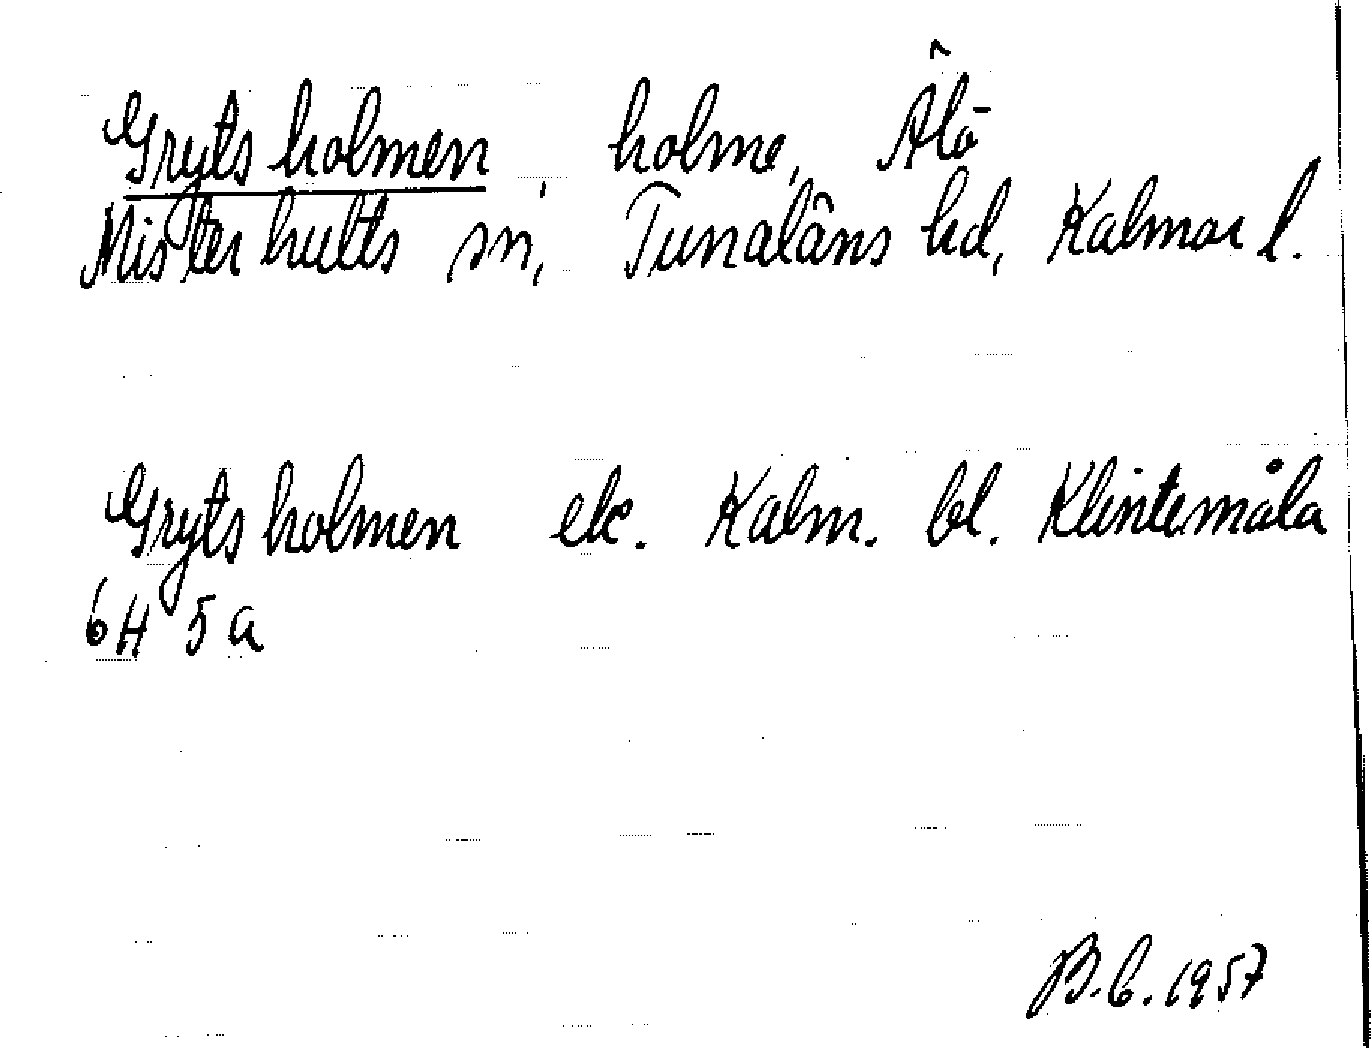 Grytsholmen, holme, Älö
Misterhults sn, Tunaläns hd, Kalmar l.
Grytsholmen ek. Kalm. bl. Klintemåla
6H 5a
B.C. 1957